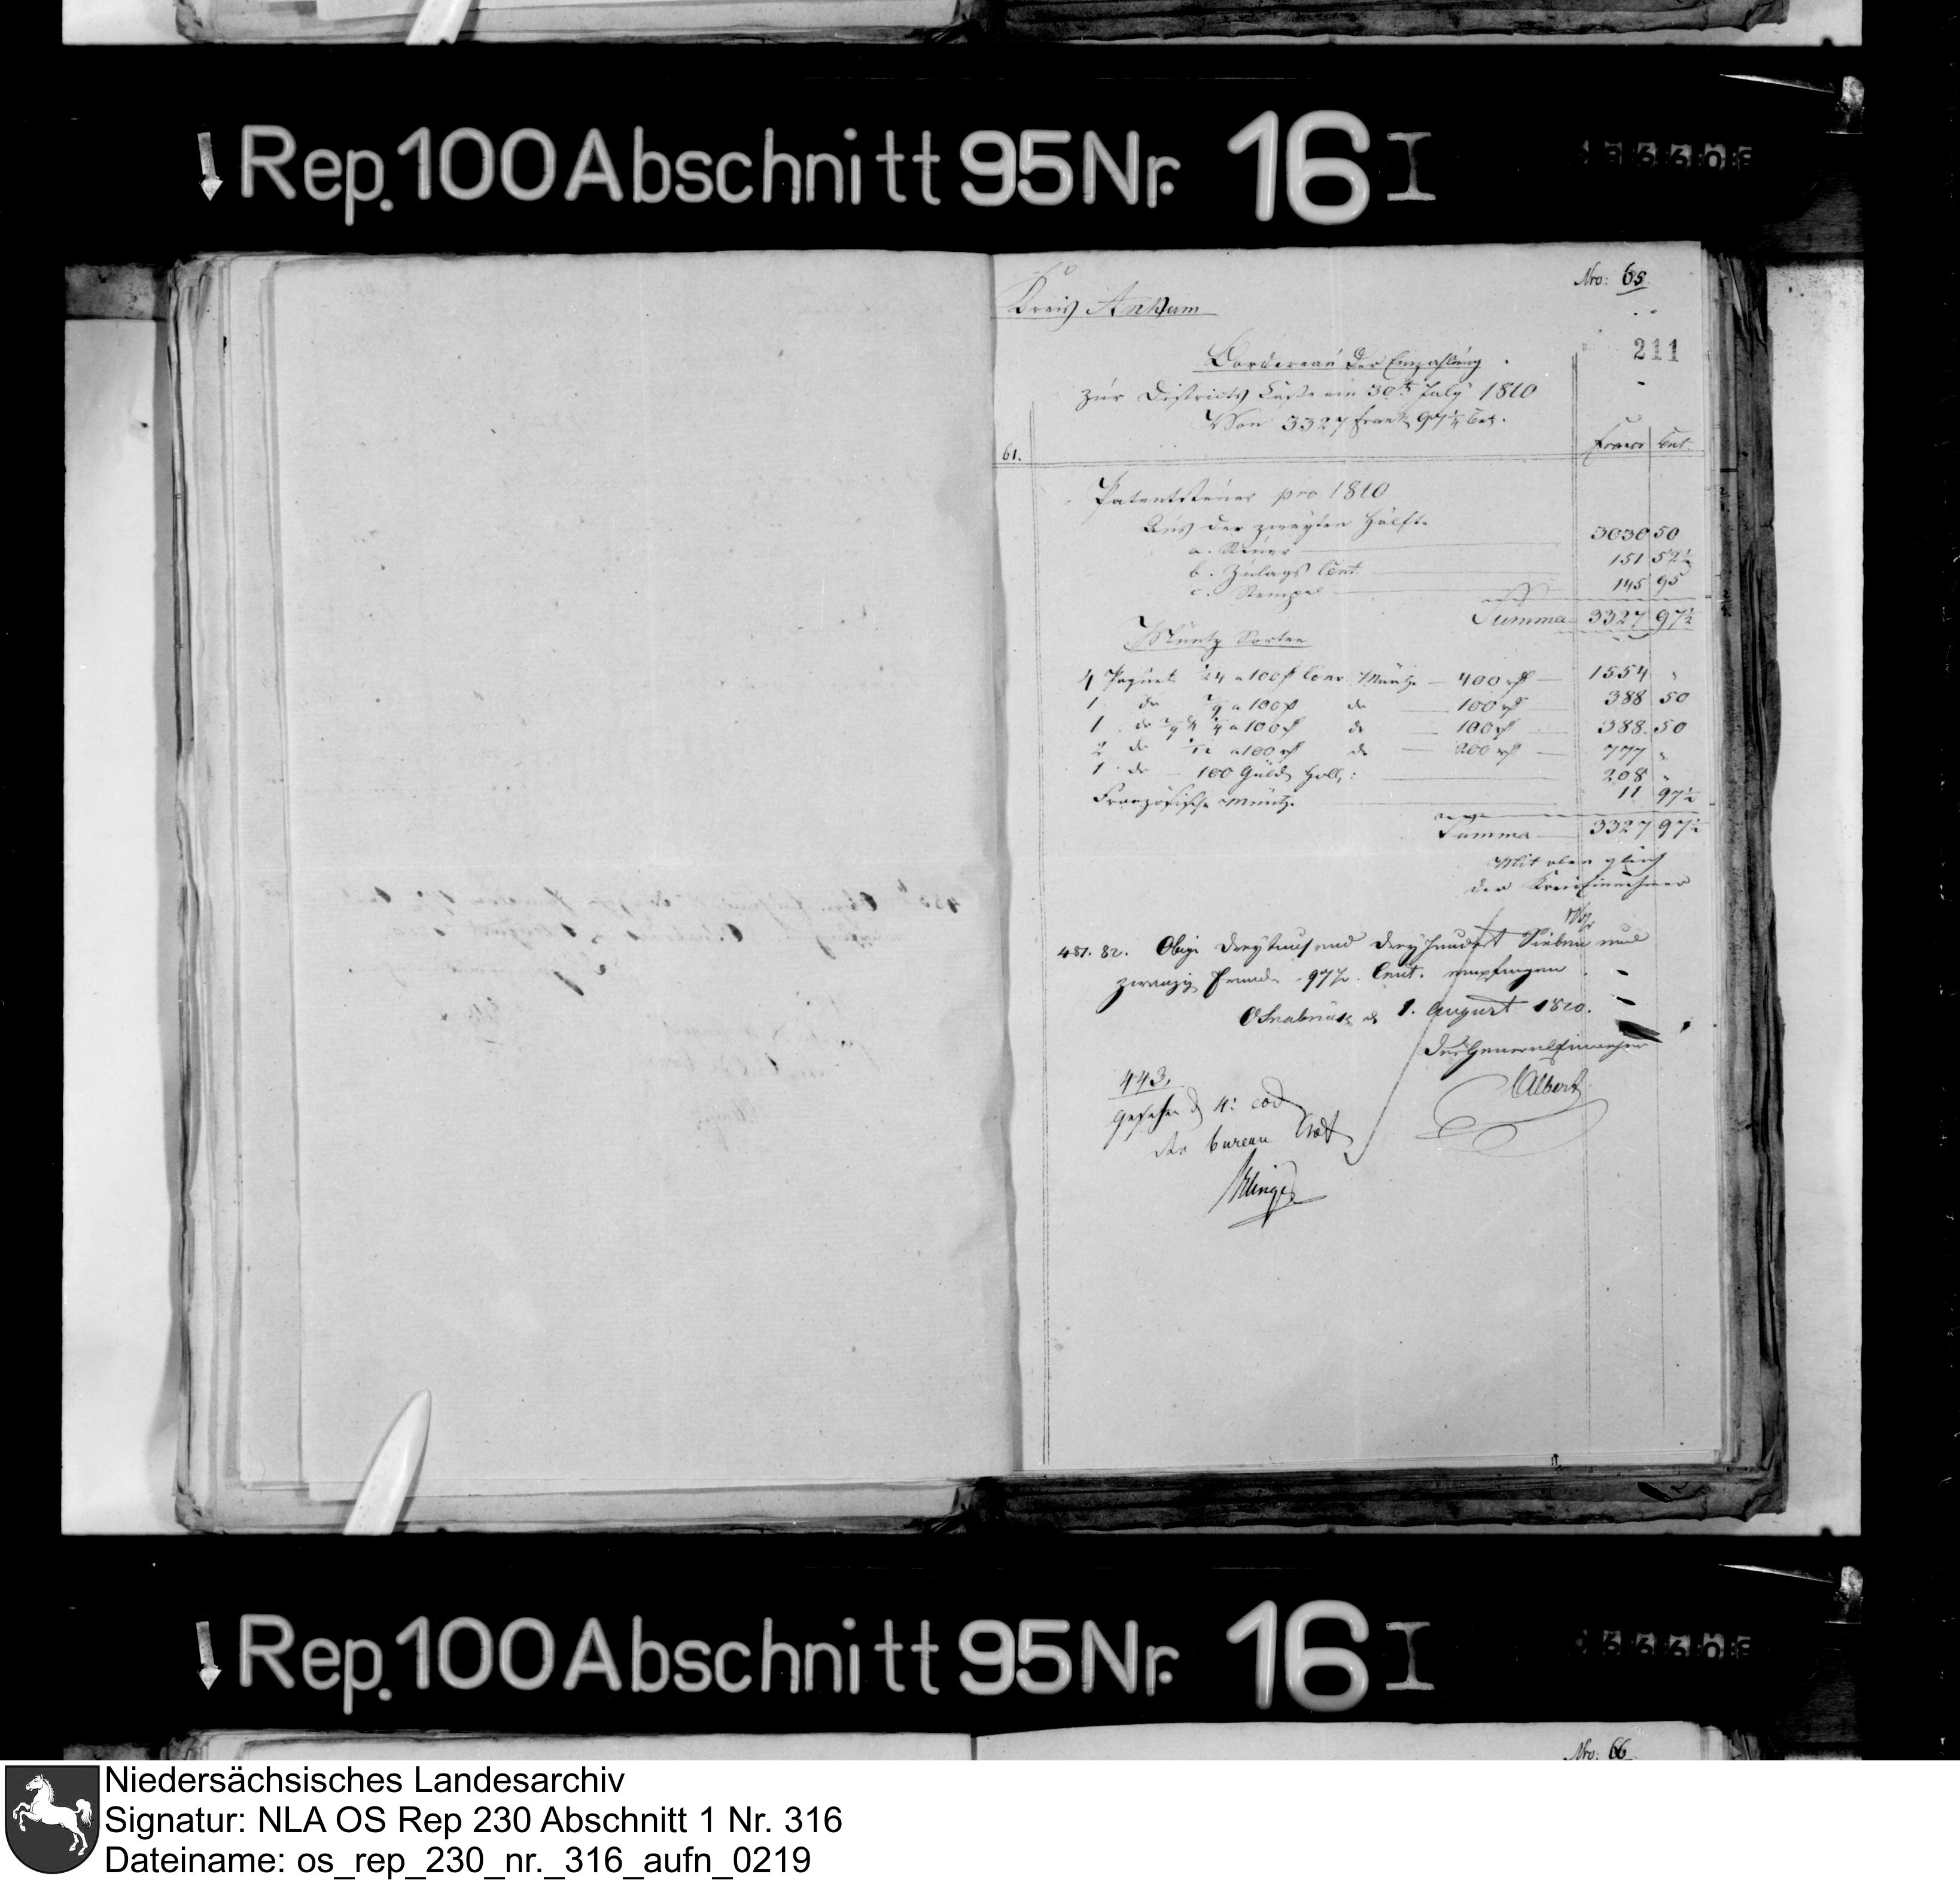 Rep. 100 Abschnitt 95 Nr. 16 I
Nro: 65
Kreis Ankum
211
Bordereau der Einzahlung
zur Districts Casse am 30ten July 1810
Von 3327 Frank 97½ Cent.
Francs Cent.
61.
Patentsteuer pro 1810
Aus der zweyten Hälfte
a. Steuer 3030 50
b. Zulags Cent. 151 52½
c. Stempel 145 95
Summa 3327 97½
Müntz Sorten
4 Paquet 1/24 a 100 rt Conv. Müntze 400 rt 1554 "
1 do a 100 rt do 100 rt 388 50
1 do a 100 rt do 100 rt 388. 50
2 do 1/12 a 100 rt do 200 rt 777 "
1 do 100 Guld Holl: 208 "
Französische Müntze 11 97½
Summa 3327 97½
Mit oben gleich
der Kreiseinnehmer
481. 82. Obige Dreytausend Dreyhundert Sieben und
zwanzig Franks 97½ Cent. empfangen
Osnabrück d 1. August 1810.
Der General Einnehmer
Albert
443.
Gesehen d 4: eod
der bureau Chef
Klinge
Rep. 100 Abschnitt 95 Nr. 16 I
Nro: 66
Niedersächsisches Landesarchiv
Signatur: NLA OS Rep 230 Abschnitt 1 Nr. 316
Dateiname: os_rep_230_nr._316_aufn_0219